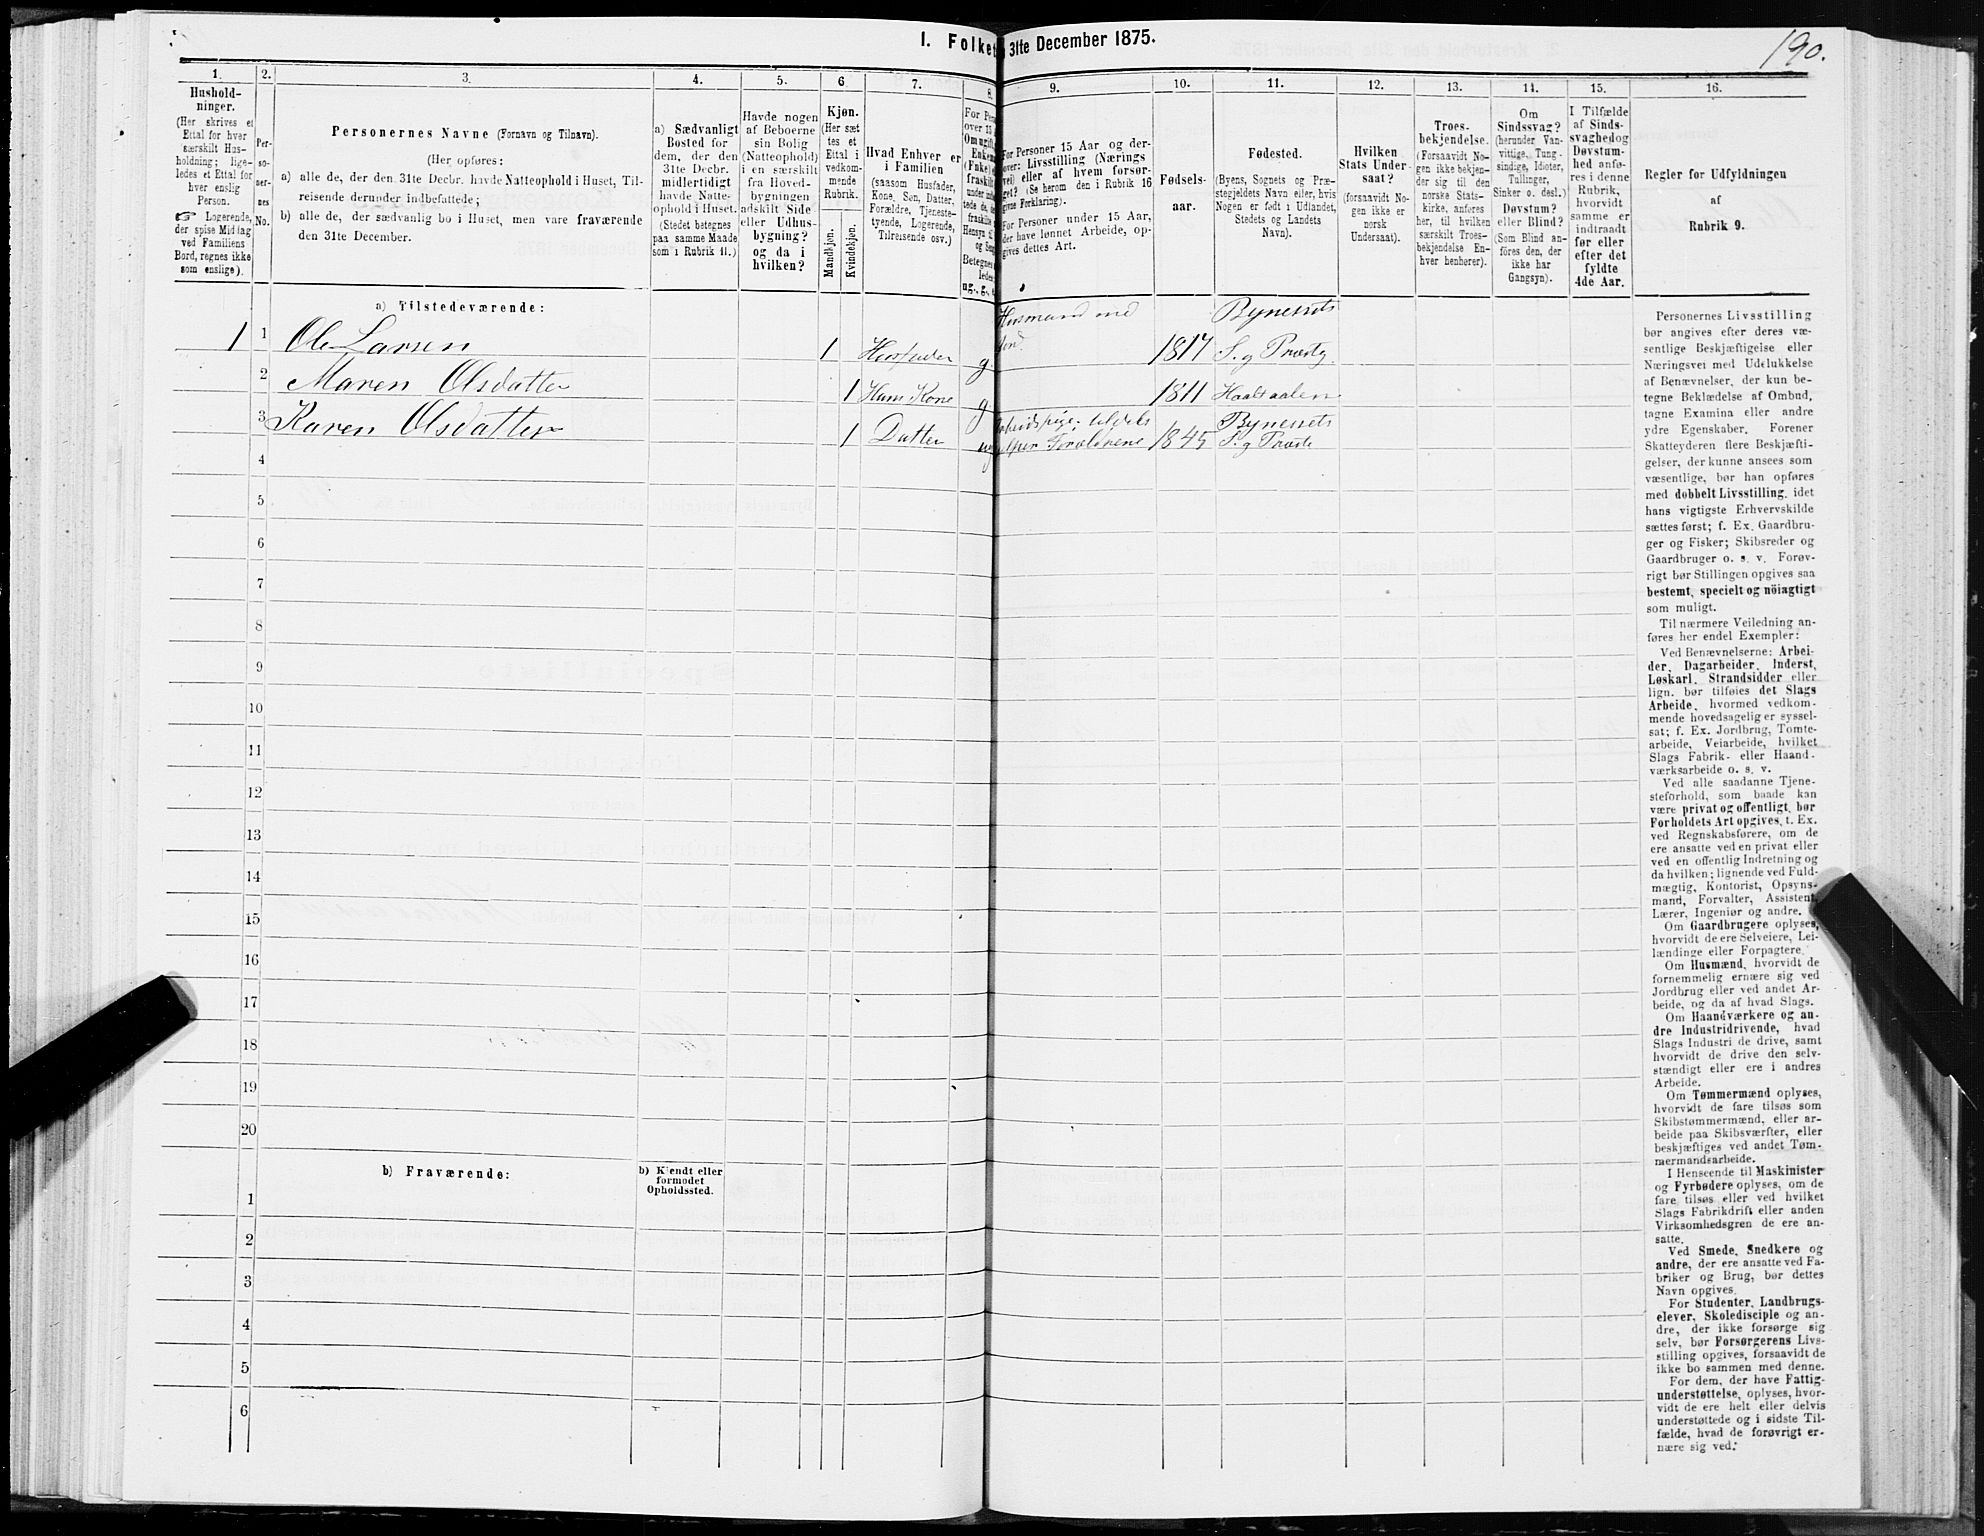 I. Folket
31te December 1875.
190.
1.
2.
3.
4.
5.
6
7.
8.
9.
10.
11.
12.
13.
14.
15.
16.
Hushold-
ninger.
(Her skrives et
Ettal for hver
særskilt Hus-
holdning; lige-
ledes et Ettal for
hver enslig
Person.
☞ Logerende,
der spise Middag
ved Familiens
Bord, regnes ikke
som enslige).
Per-
so-
ner-
nes
No.
Personernes Navne (Fornavn og Tilnavn).
(Her opføres:
a) alle de, der den 31te Decbr. havde Natteophold i Huset, Til-
reisende derunder indbefattede;
b) alle de, der sædvanlig bo i Huset, men vare fraværende
den 31te December.
a) Sædvanligt
Bosted for
dem, der den
31te Decbr.
midlertidigt
havde Natte-
ophold i Huset.
(Stedet betegnes
paa samme Maade
som i Rubrik 11.)
Havde nogen
af Beboerne
sin Bolig
(Natteophold)
i en særskilt
fra Hoved-
bygningen
adskilt Side-
eller Udhus-
bygning?
og da i
hvilken?
Kjøn.
(Her sæt
tes et
Ettal i
vedkom-
mende
Rubrik.
Mandkjøn.
Kvindekjøn.
Hvad Enhver er
i Familien
(saasom Husfader,
Kone, Søn, Datter,
Forældre, Tjeneste-
tyende, Logerende,
Tilreisende osv.)
For Pers
over 15
Om ugift,
Enkem
(Enke)
fraskilt
under ind
tede de,
fraskilte
Hensyn til
og Seng
Betegnes
ledes
ug., g., e
For Personer 15 Aar og der-
over: Livsstilling (Nærings
vei) eller af hvem forsør-
get? (Se herom den i Rubrik 16
givne Forklaring).
For Personer under 15 Aar,
der have lønnet Arbeide, op-
gives dettes Art.
Fødsels-
aar.
Fødested.
(Byens, Sognets og Præ-
stegjeldets Navn eller, hvis
Nogen er født i Udlandet,
Stedets og Landets
Navn).
Hvilken
Stats Under-
saat?
(forsaavidt No-
gen ikke er
norsk
Undersaat).
Troes-
bekjendelse.
(Forsaavidt No-
gen ikke bekjen-
der sig til den
norske Stats-
kirke, anføres
her, til hvilken
særskilt Troes-
bekjendelse En-
hver henhører).
Om
Sindssvag?
(herunder Van-
vittige, Tung-
sindige, Idioter,
Tullinger,
Sinker o. desl.)
Døvstum?
eller Blind?
(Som Blind an-
føres den, der
ikke har
Gangsyn).
I Tilfælde
af Sinds-
svaghed og
Døvstum-
hed anfø-
res i denne
Rubrik,
hvorvidt
samme er
indtraadt
før eller
efter det
fyldte
4de Aar.
Regler for Udfyldningen
af
Rubrik 9.
a) Tilstedeværende:
1 1 Ole Larsen 1 Husfader g Husmand med Jord 1817 Bynessets S. og Præstg.
2 Maren Olsdatter 1 Hans Kone g 1811 Haaltaalen
3 Karen Olsdatter 1 Datter ug tildels Forældrene 1845 Bynessets S. og Præste
4
5
6
7
8
9
10
11
12
13
14
15
16
17
18
19
20
b) Fraværende:
b) Kjendt eller
formodet
Opholdssted.
1
2
3
4
5
6
Personernes Livsstilling
bør angives efter deres væ-
sentlige Beskjæftigelse eller
Næringsvei med Udelukkelse
af Benævnelser, der kun be-
tegne Beklædelse af Ombud,
tagne Examina eller andre
ydre Egenskaber. Forener
Skatteyderen flere Beskjæfti-
gelser, der kunne ansees som
væsentlige, bør han opføres
med dobbelt Livsstilling, idet
hans vigtigste Erhvervskilde
sættes først; f. Ex. Gaardbru-
ger og Fisker; Skibsreder og
Gaardbruger o. s. v. Forøv-
rigt bør Stillingen opgives saa
bestemt, specielt og nøiagtigt
som muligt.
Til nærmere Veiledning an-
føres her endel Exempler:
Ved Benævnelserne: Arbei-
der, Dagarbeider, Inderst,
Løskarl, Strandsidder eller
lign. bør tilføies det Slags
Arbeide, hvormed vedkom-
mende hovedsagelig er syssel-
sat; f. Ex. Jordbrug, Tomte-
arbeide, Veiarbeide, hvilket
Slags Fabrik- eller Haand-
værksarbeide o. s. v.
Ved alle saadanne Tjene-
steforhold, som baade kan
være privat og offentligt, bør
Forholdets Art opgives, t. Ex.
ved Regnskabsførere, om de
ere ansatte ved en privat eller
ved en offentlig Indretning og
da hvilken; lignende ved Fuld-
mægtig, Kontorist, Opsyns-
mand, Forvalter, Assistent,
Lærer, Ingeniør og andre.
Om Gaardbrugere oplyses,
hvorvidt de ere Selveiere, Lei-
lændinge eller Forpagtere.
Om Husmænd, hvorvidt de
fornemmelig ernære sig ved
Jordbrug eller ved andet Ar-
beide, og da af hvad Slags.
Om Haandværkere og an-
dre Industridrivende, hvad
Slags Industri de drive, samt
hvorvidt de drive den selv-
stændigt eller ere i andres
Arbeide.
Om Tømmermænd oplyses,
hvorvidt de fare tilsøs som
Skibstømmermænd, eller ar-
beide paa Skibsværfter, eller
beskjæftiges ved andet Tøm-
mermandsarbeide.
I Henseende til Maskinister
og Fyrbødere oplyses, om de
fare tilsøs eller ved hvilket
Slags Fabrikdrift eller anden
Virksomhedsgren de ere an-
satte.
Ved Smede, Snedkere og
andre, der ere ansatte ved Fa-
briker og Brug, bør dettes
Navn opgives.
For Studenter, Landbrugs-
elever, Skoledisciple og an-
dre, der ikke forsørge sig
selv, bør Forsørgerens Livs-
stilling opgives, forsaavidt de
ikke bo sammen med denne.
For dem, der have Fattig-
understøttelse, oplyses, hvor-
vidt de ere helt eller delvis
understøttede og i sidste Til-
fælde, hvad de forøvrigt er-
nære sig ved.